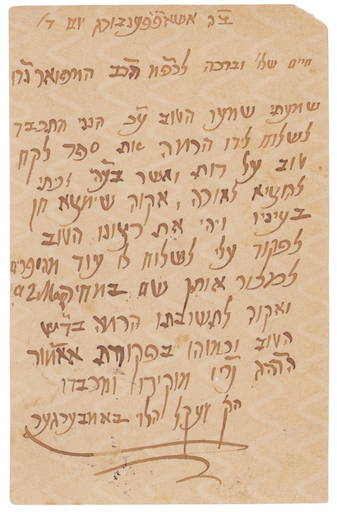 ב"ה אשאפפענבורג יום ד'
חיים שלו' וברכה לכ"מ הרב המפואר נ"ו
שמעתי שמעו הטוב ע"כ הנני מתכבד
לשלוח לידו הרמה את ספר לקח
טוב על רות ואשר בע"ה זכתי
להוציא לאורה, אקוה שימצא חן
בעיניו ויהי את רצונו הטוב
לפקוד עלי לשלוח לו עוד מהספרים
למכור אותן שם במחיר 2 M
ואקוה לתשובתו הרמה בד"ש
הטוב וכמוהו בפקודת אאמו"ר
הה"ג נ"ו מוקירו ומכבדו
הק' יעקל הלוי באמבערגער